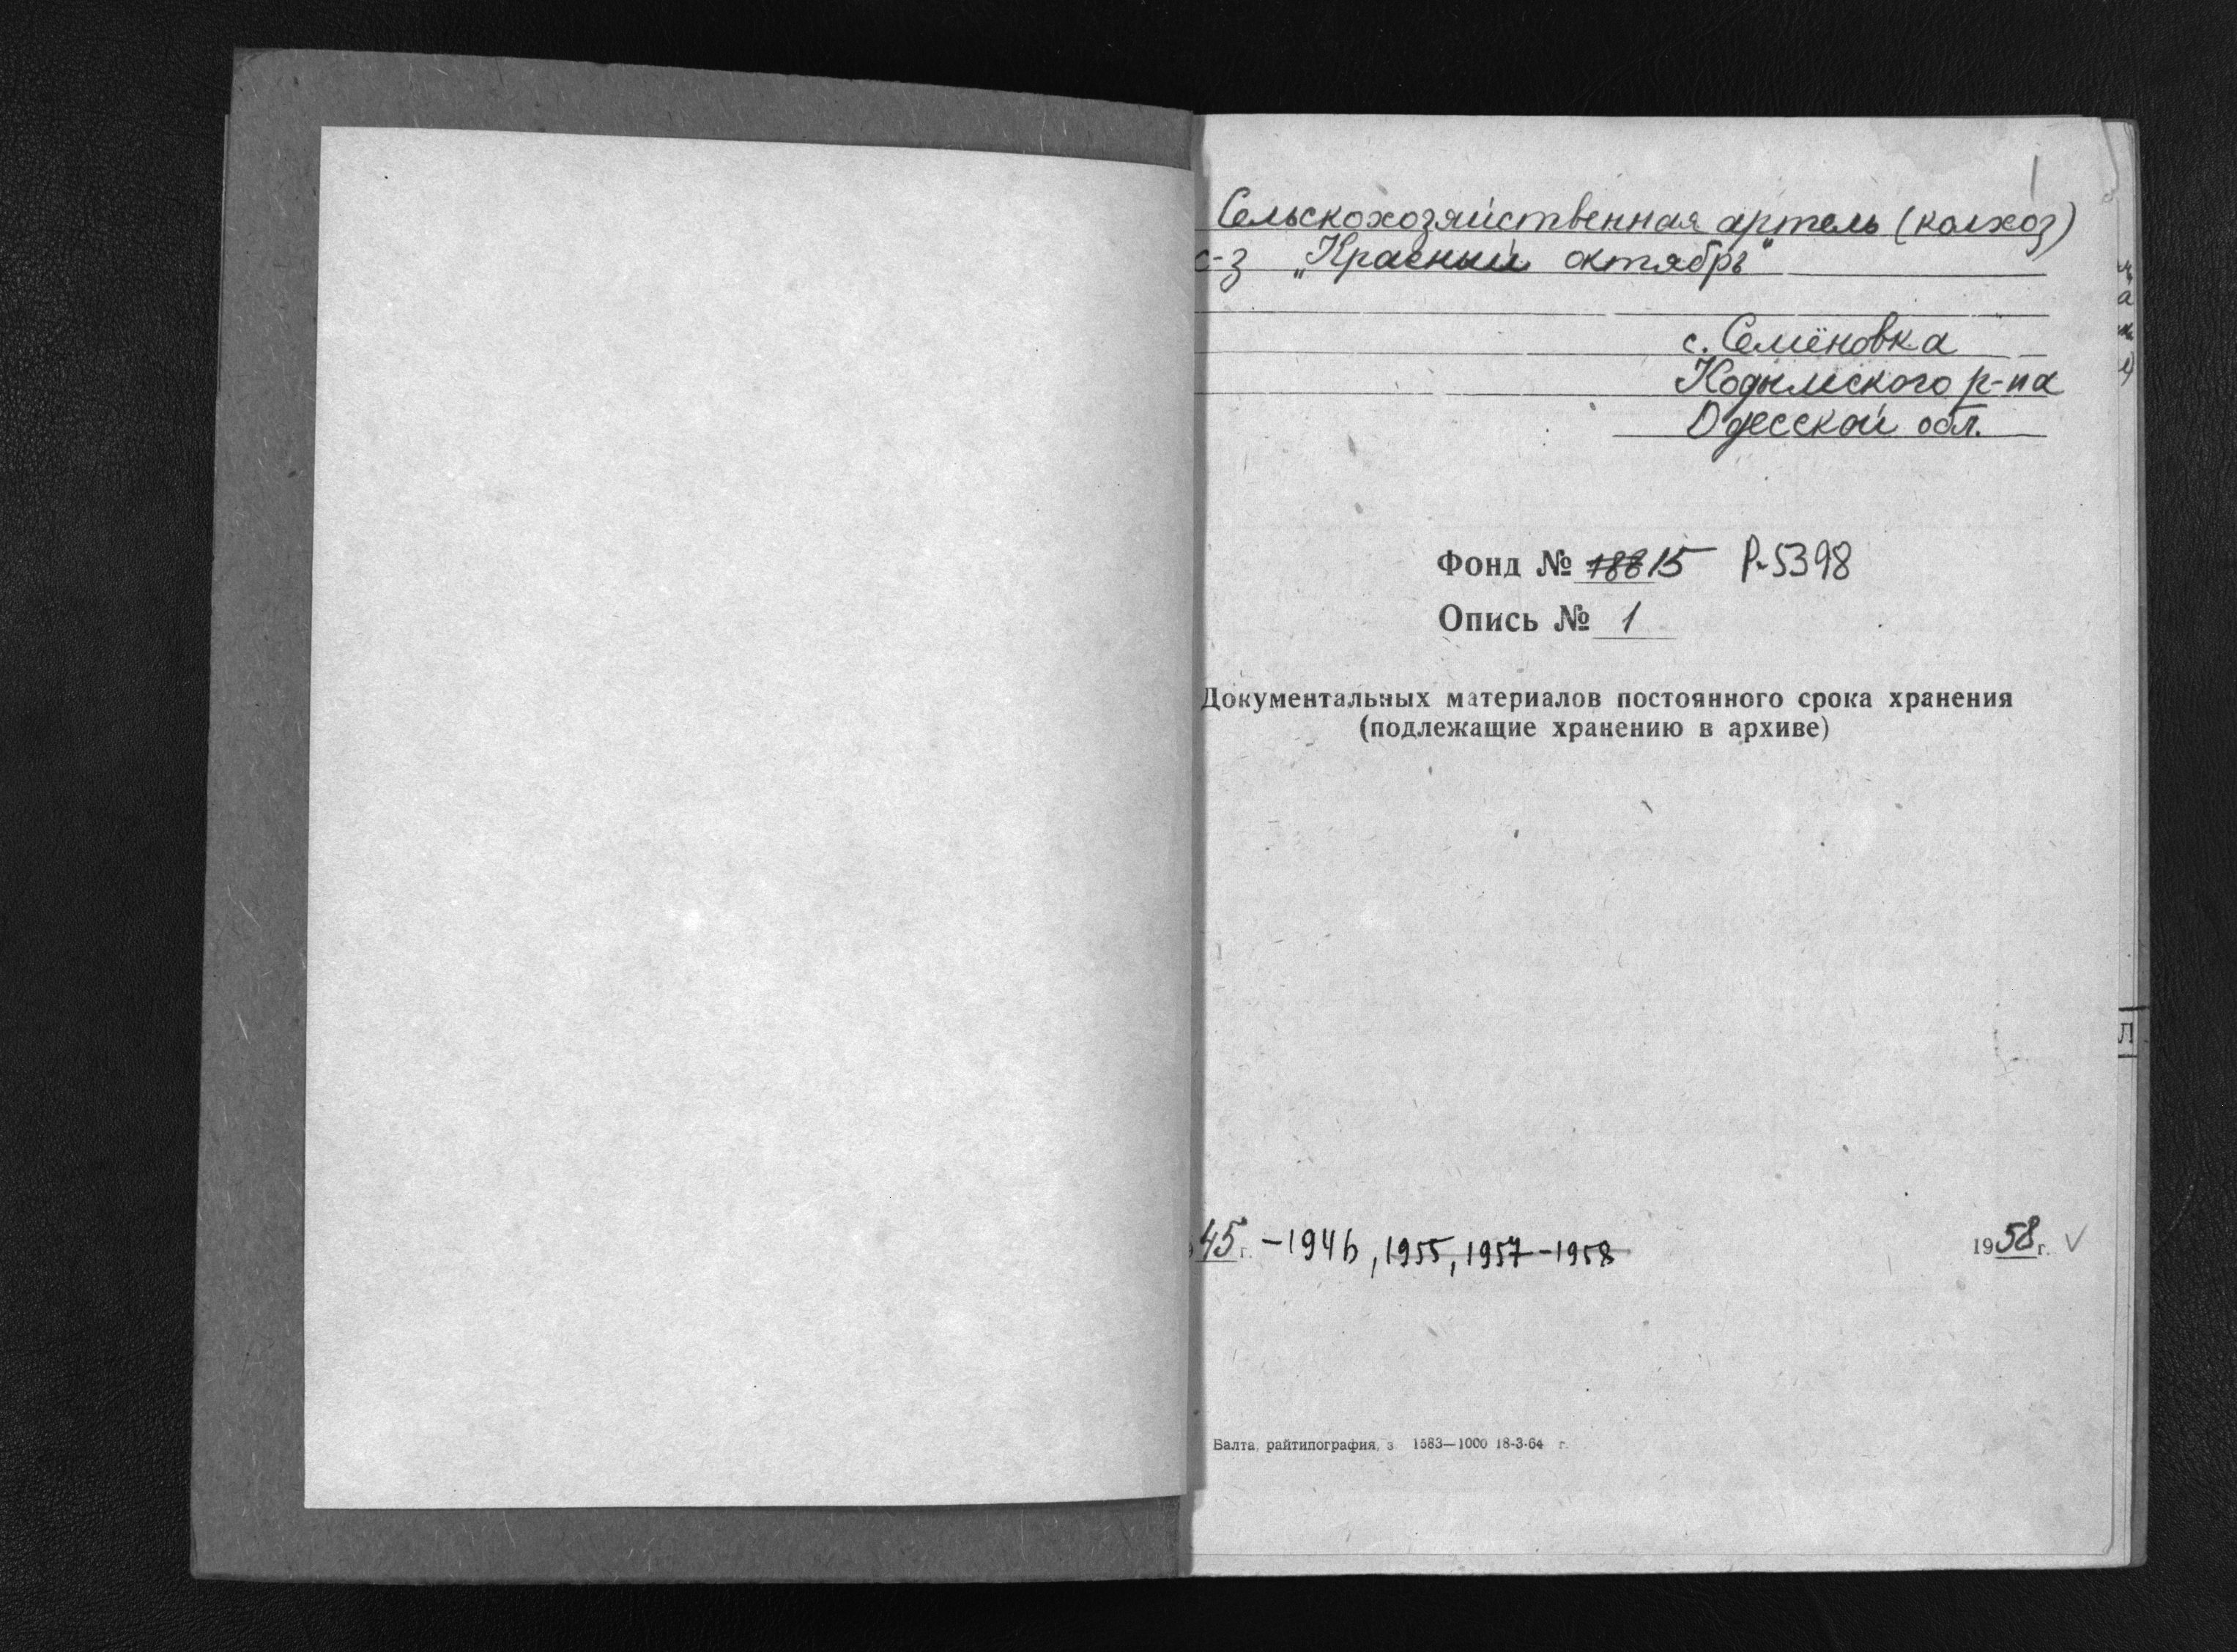 1
Сельскохозяйственная артель (колхоз)
с-з „Красный октябрь"
с. Семёновка
Кодымского р-на
Одесской обл.
Фонд № 15 Р-5398
Опись № 1
Документальных материалов постоянного срока хранения
(подлежащие хранению в архиве)
45 г. – 1946, 1955, 1957 – 1958 1958 г. V
Балта, райтипография, з. 1583—1000 18-3-64 г.